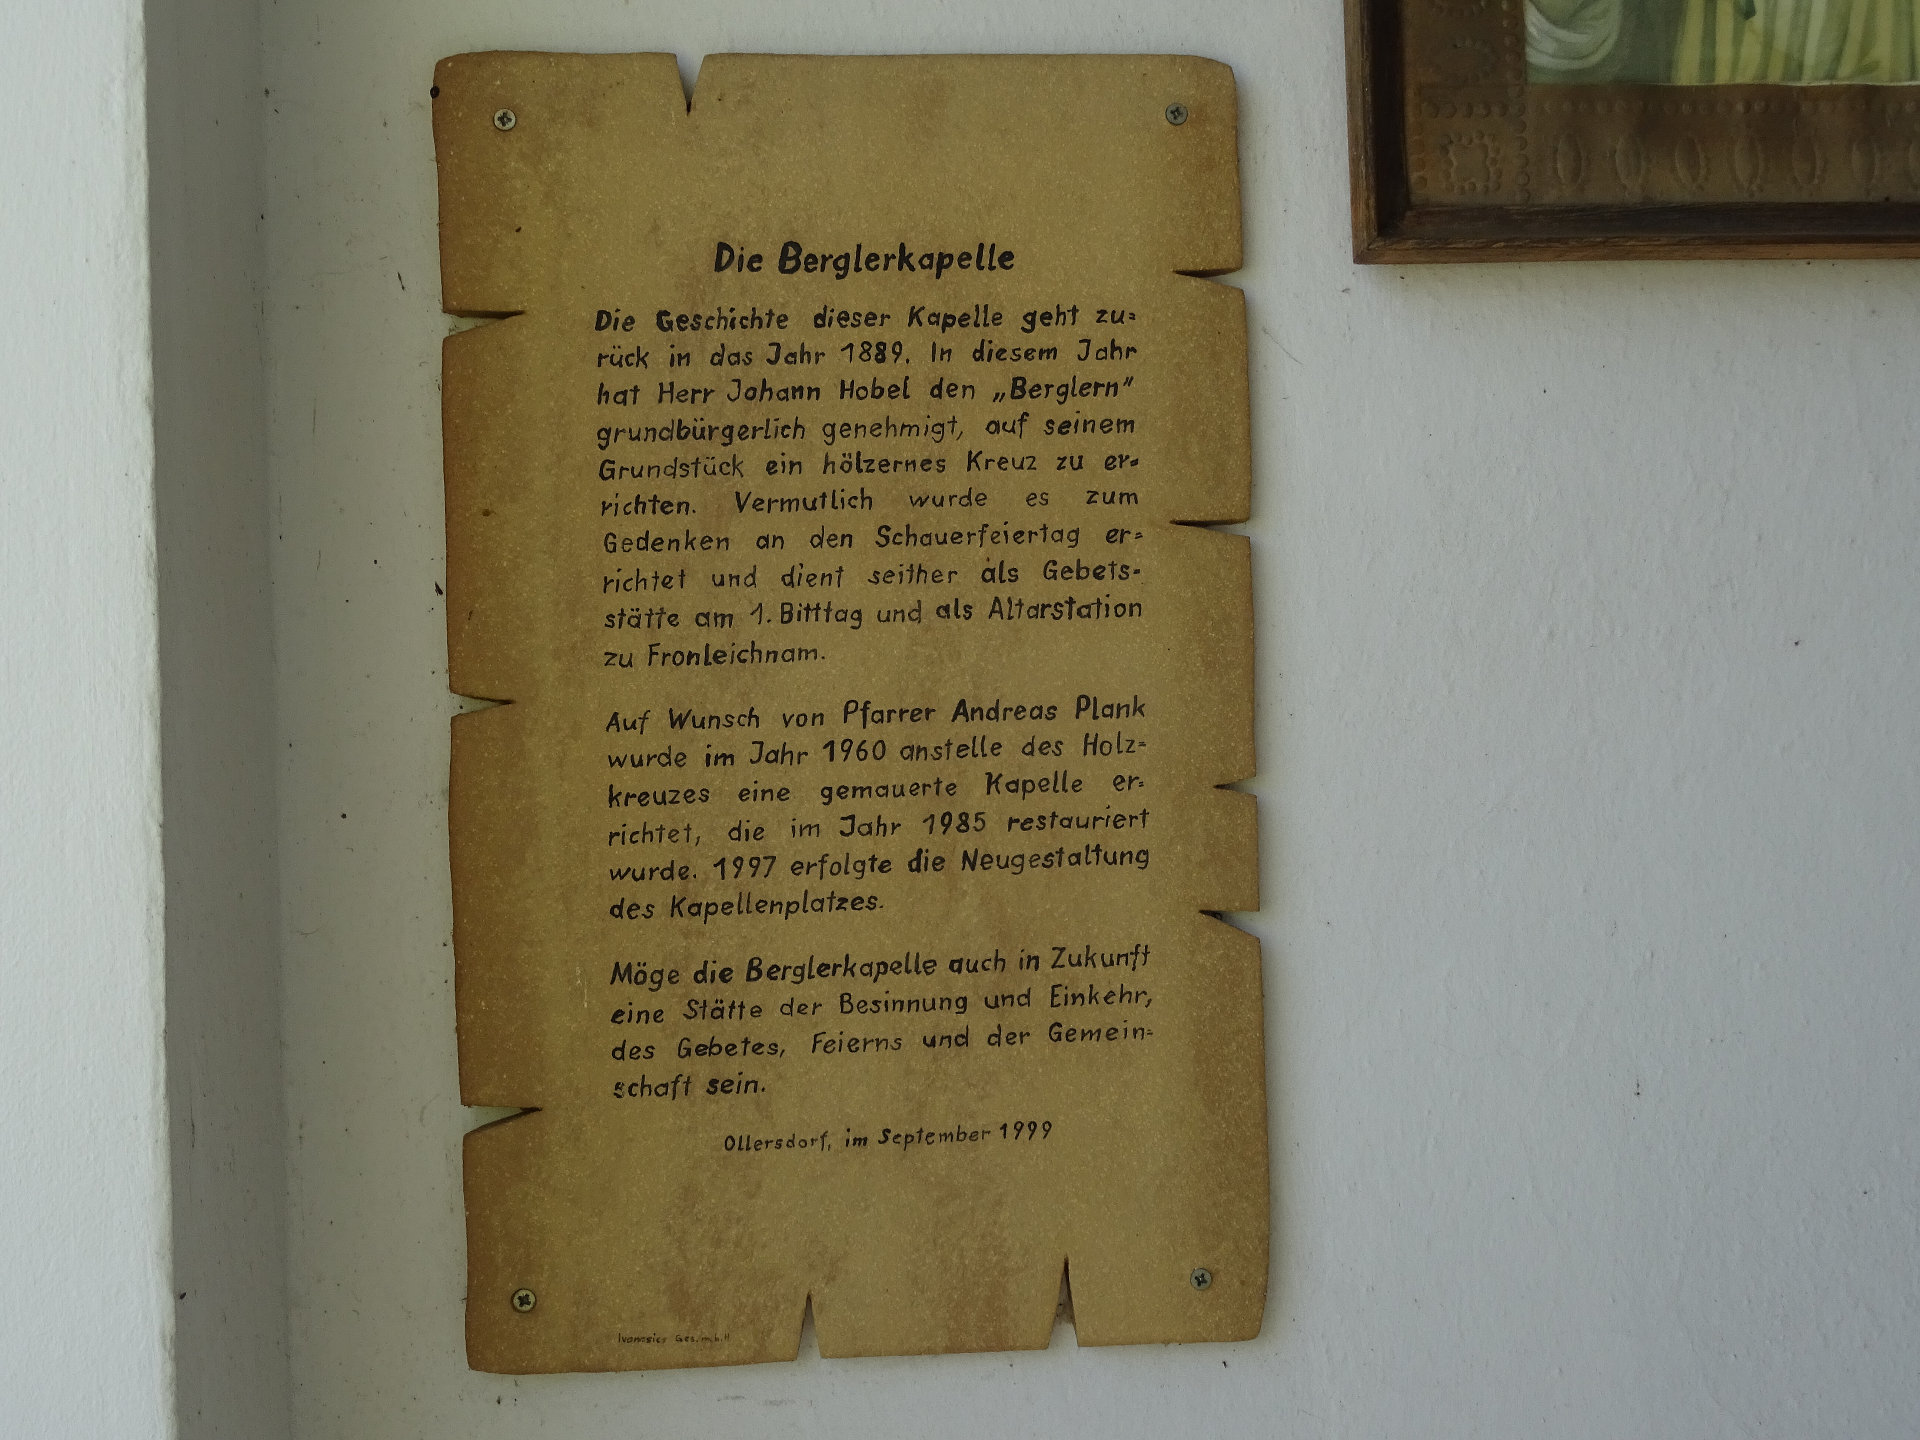 Die Berglerkapelle
Die Geschichte dieser Kapelle geht zu=
rück in das Jahr 1889. In diesem Jahr
hat Herr Johann Hobel den „Berglern"
grundbürgerlich genehmigt, auf seinem
Grundstück ein hölzernes Kreuz zu er=
richten. Vermutlich wurde es zum
Gedenken an den Schauerfeiertag er=
richtet und dient seither als Gebets=
stätte am 1. Bitttag und als Altarstation
zu Fronleichnam.
Auf Wunsch von Pfarrer Andreas Plank
wurde im Jahr 1960 anstelle des Holz=
kreuzes eine gemauerte Kapelle er=
richtet, die im Jahr 1985 restauriert
wurde. 1997 erfolgte die Neugestaltung
des Kapellenplatzes.
Möge die Berglerkapelle auch in Zukunft
eine Stätte der Besinnung und Einkehr,
des Gebetes, Feierns und der Gemein=
schaft sein.
Ollersdorf, im September 1999
Ges.m.b.H